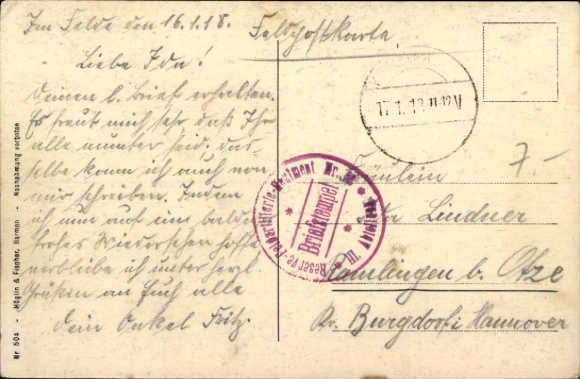 Im Felde den 16.1.18.
Feldpostkarte
Liebe Ida!
Deinen l. Brief erhalten.
Es freut mich sehr daß Ihr
alle munter seid; das-
selbe kann ich auch von
mir schreiben. Indem
ich nun auf ein baldi
frohes Wiedersehen hoffe
verbleibe ich unter herzl
Grüßen an Euch alle
Dein Onkel Fritz.
7-
Fräulein
Lindner
Ramlingen b. Otze
Kr. Burgdorf i Hannover
Reserve-Feldartillerie-Regiment Nr.
III. Abteilung
Briefstempel
Nr 504 - Höglin & Fischer, Barmen - Nachahmung verboten